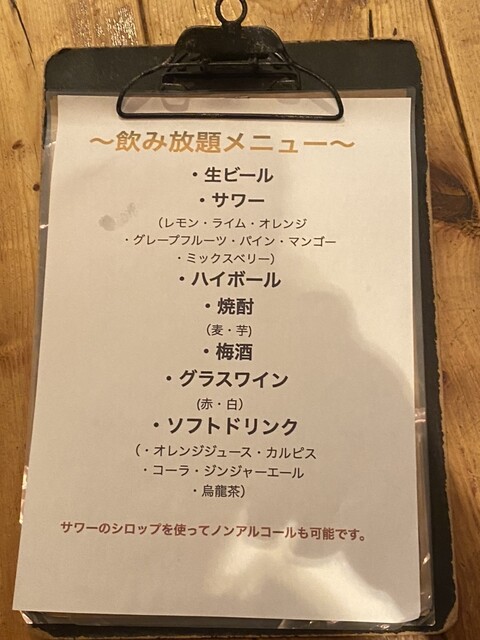 〜飲み放題メニュー〜
・生ビール
・サワー
（レモン・ライム・オレンジ
・グレープフルーツ・パイン・マンゴー
・ミックスベリー）
・ハイボール
・焼酎
(麦・芋)
・梅酒
・グラスワイン
(赤・白）
・ソフトドリンク
（・オレンジジュース・カルピス
・コーラ・ジンジャーエール
・烏龍茶）
サワーのシロップを使ってノンアルコールも可能です。